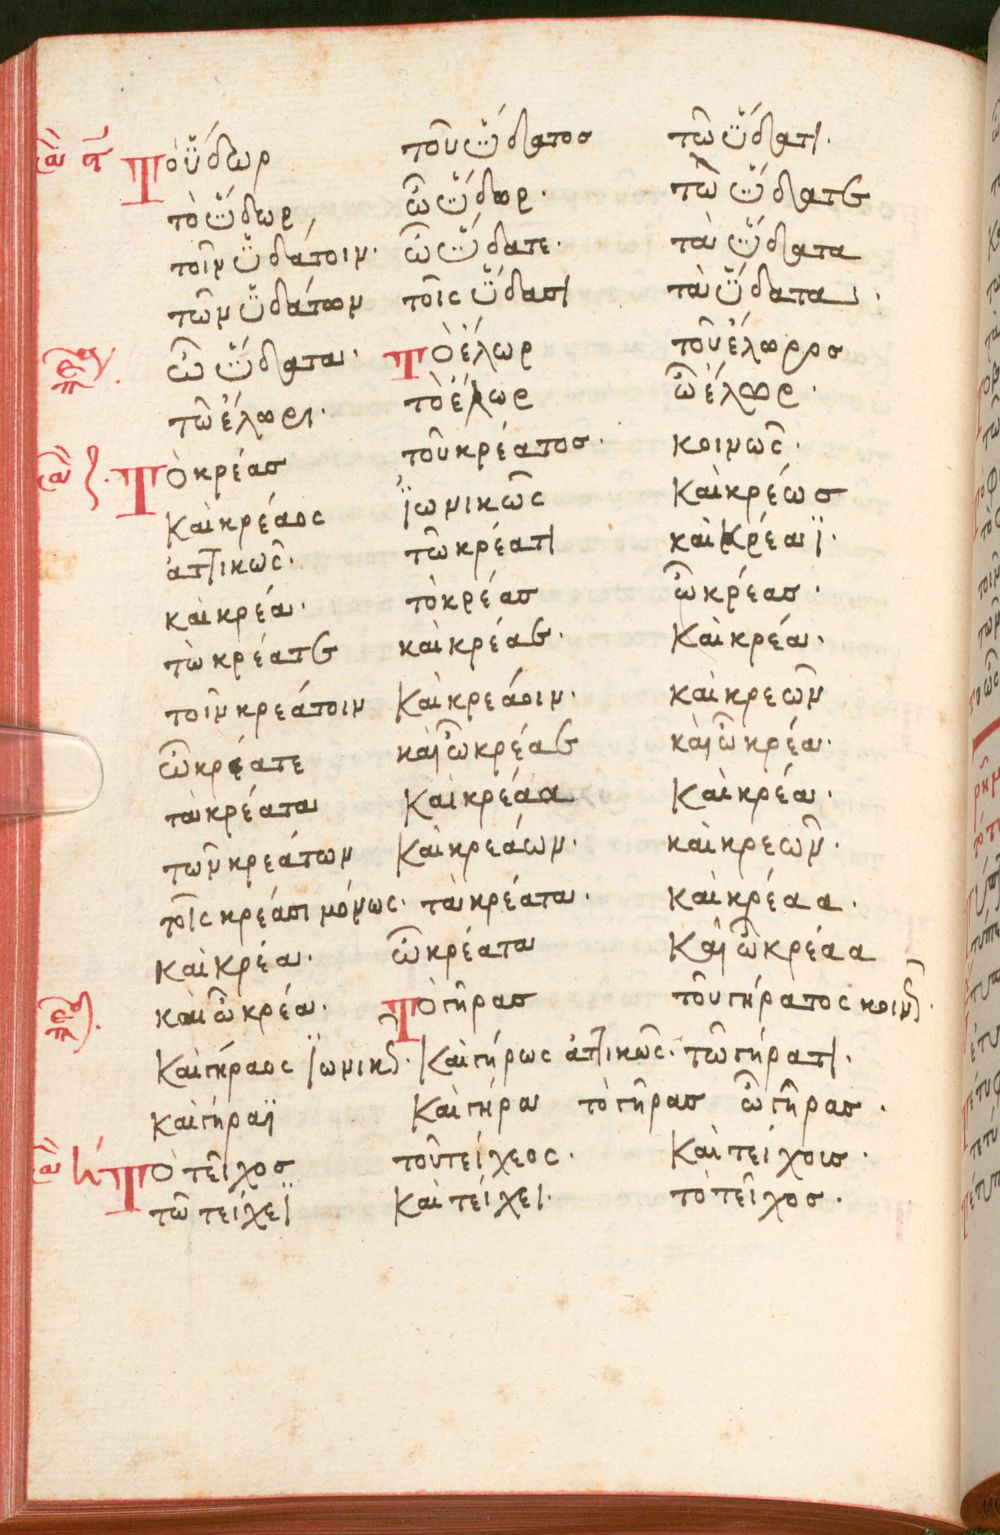 Τὸ ὕδωρ τοῦ ὕδατος τῶ ὕδατι·
τὸ ὕδωρ, ὦ ὕδωρ· τὼ ὕδατε
τοῖν ὑδάτοιν· ὦ ὕδατε· τὰ ὕδατα
τῶν ὑδάτων τοῖς ὕδασι τὰ ὕδατα·
ὦ ὕδατα· Τὸ ἕλωρ τοῦ ἕλωρος
τῶ ἕλωρι· τὸ ἕλωρ ὦ ἕλωρ·
Τὸ κρέας τοῦ κρέατος· κοινῶς·
καὶ κρέαος ϊωνικῶς καὶ κρέως
ἀττικῶς· τῶ κρέατι καὶ κρέαϊ·
καὶ κρέα· τὸ κρέας ὦ κρέας·
τὼ κρέατε καὶ κρέαε· καὶ κρέα·
τοῖν κρεάτοιν καὶ κρεάοιν· καὶ κρεῶν
ὦ κρέατε καὶ ὦ κρέαε καὶ ὦ κρέα·
τὰ κρέατα καὶ κρέαα καὶ κρέα·
τῶν κρεάτων καὶ κρεάων· καὶ κρεῶν·
τοῖς κρέασι μόνως· τὰ κρέατα· καὶ κρέαα·
καὶ κρέα· ὦ κρέατα καὶ ὦ κρέαα
καὶ ὦ κρέα· Τὸ γῆρας τοῦ γήρατος κοινῶς·
καὶ γήραος ϊωνικῶς· καὶ γήρως ἀττικῶς· τῶ γήρατι·
καὶ γήραϊ καὶ γήρα τὸ γῆρας ὦ γῆρας·
Τὸ τεῖχος τοῦ τείχεος· καὶ τείχους·
τῶ τείχεϊ καὶ τείχει· τὸ τεῖχος·